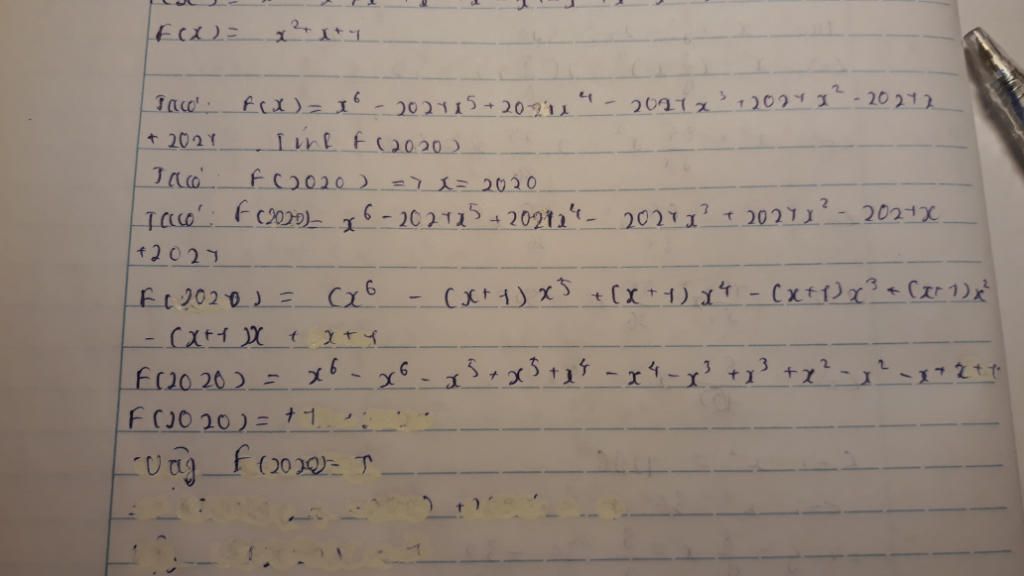 F(x) = x² + x + 1
Ta có: F(x) = x⁶ - 2021x⁵ + 2021x⁴ - 2021x³ + 2021x² - 2021x
+ 2021. Tính F(2020)
Ta có F(2020) => x = 2020
Ta có: F(2020) = x⁶ - 2021x⁵ + 2021x⁴ - 2021x³ + 2021x² - 2021x
+2021
F(2020) = (x⁶ - (x+1)x⁵ + (x+1)x⁴ - (x+1)x³ + (x+1)x²
- (x+1)x + x+1
F(2020) = x⁶ - x⁶ - x⁵ + x⁵ + x⁴ - x⁴ - x³ + x³ + x² - x² - x + x + 1
F(2020) = +1
Vậy F(2020) = 1